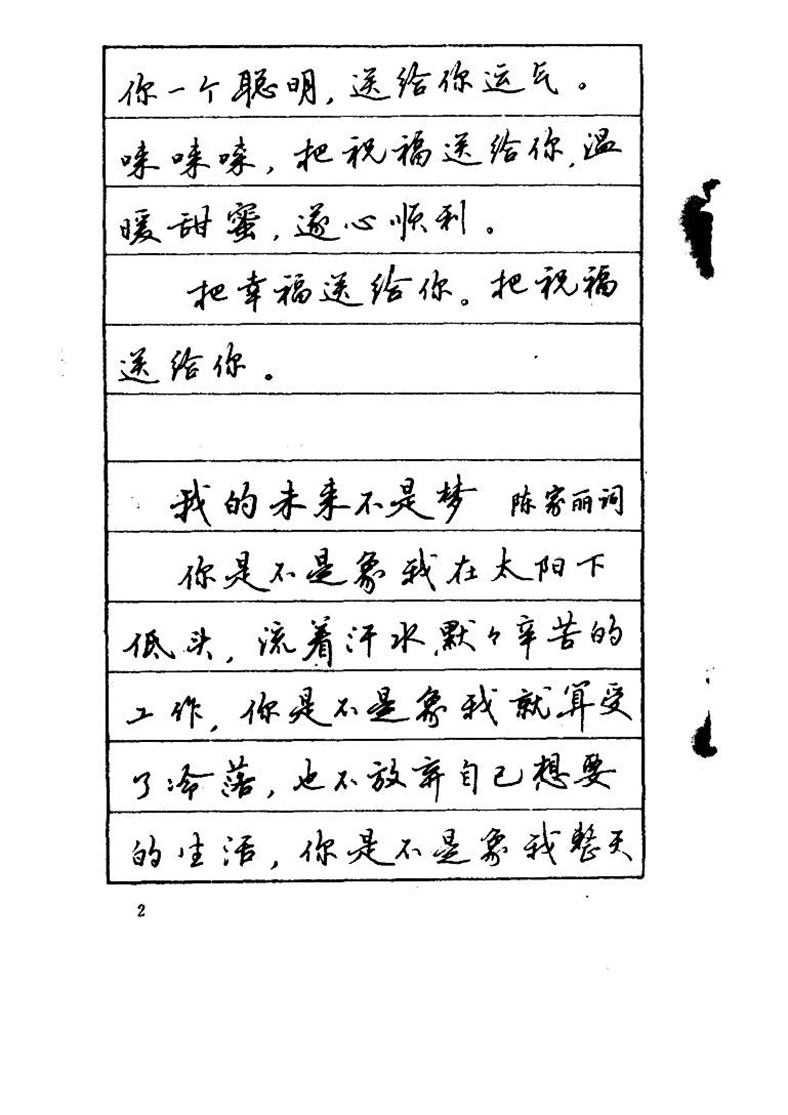 你一个聪明，送给你运气。
味味味，把祝福送给你，温
暖甜蜜，遂心顺利。
把幸福送给你。把祝福
送给你。
我的未来不是梦 陈家丽词
你是不是象我在太阳下
低头，流着汗水，默々辛苦的
工作，你是不是象我就算受
了冷落，也不放弃自己想要
的生活，你是不是象我整天
2